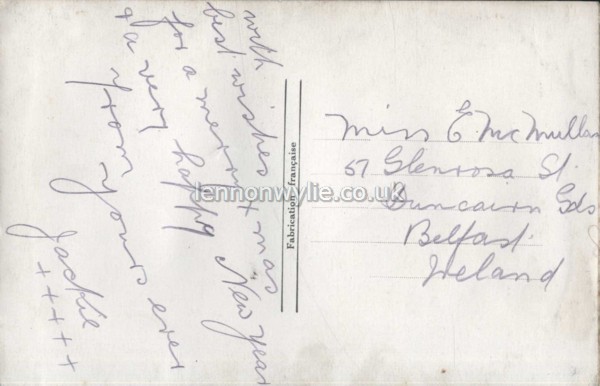 with
best wishes
for a merry xmas
+ a very happy New Year
from yours ever
Jackie
+ + + + +
Fabrication française
Miss E. McMullan
57 Glenrosa St.
Duncairn Gds
Belfast.
Ireland
lennonwylie.co.uk